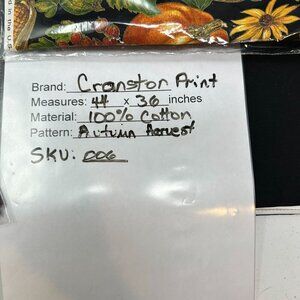 Brand: Cranston Print
Measures: 44 x 36 inches
Material: 100% Cotton
Pattern: Autumn Harvest
SKU: 006